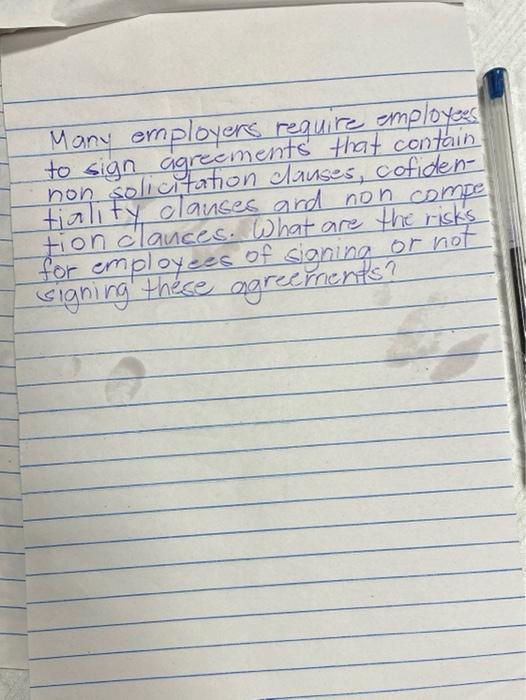 Many employers require employees
to sign agreements that contain
non solicitation clauses, cofiden-
tiality clauses and non compe
tion clauses. What are the risks
for employees of signing or not
signing these agreements?